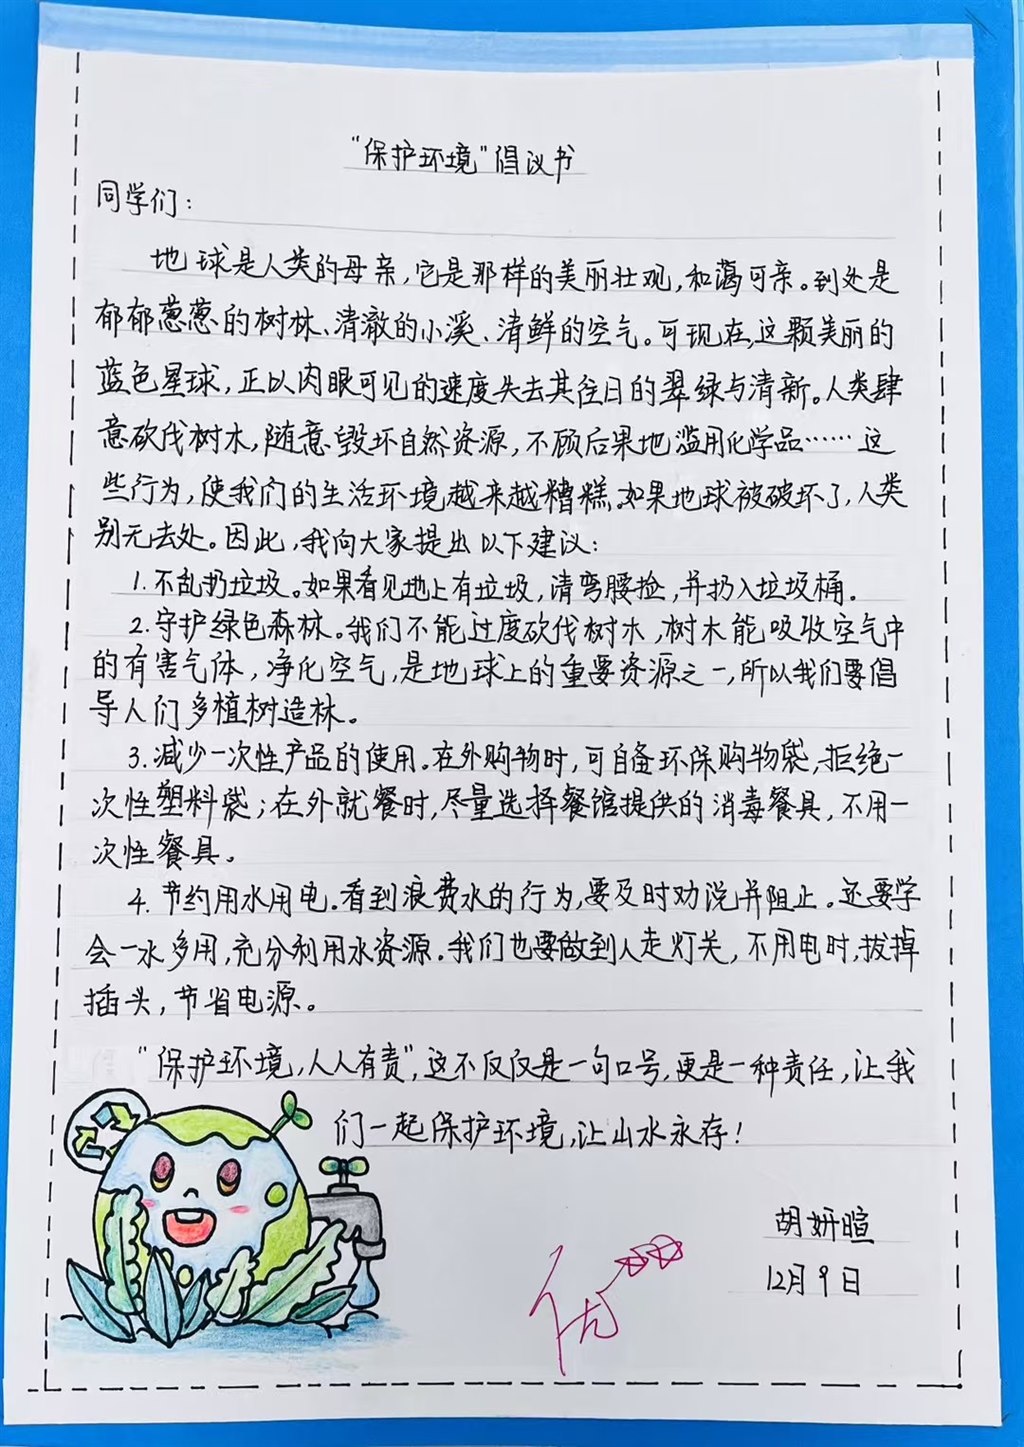 “保护环境”倡议书
同学们：
地球是人类的母亲，它是那样的美丽壮观，和蔼可亲。到处是
郁郁葱葱的树林、清澈的小溪、清鲜的空气。可现在，这颗美丽的
蓝色星球，正以肉眼可见的速度失去其往日的翠绿与清新。人类肆
意砍伐树木，随意毁坏自然资源，不顾后果地滥用化学品……这
些行为，使我们的生活环境越来越糟糕。如果地球被破坏了，人类
别无去处。因此，我向大家提出以下建议：
1. 不乱扔垃圾。如果看见地上有垃圾，请弯腰捡，并扔入垃圾桶。
2. 守护绿色森林。我们不能过度砍伐树木，树木能吸收空气中
的有害气体，净化空气，是地球上的重要资源之一，所以我们要倡
导人们多植树造林。
3. 减少一次性产品的使用。在外购物时，可自备环保购物袋，拒绝一
次性塑料袋；在外就餐时，尽量选择餐馆提供的消毒餐具，不用一
次性餐具。
4. 节约用水用电。看到浪费水的行为，要及时劝说并阻止。还要学
会一水多用，充分利用水资源。我们也要做到人走灯关，不用电时，拔掉
插头，节省电源。
“保护环境，人人有责”，这不仅仅是一句口号，更是一种责任，让我
们一起保护环境，让山水永存！
胡妍暄
12月9日
优